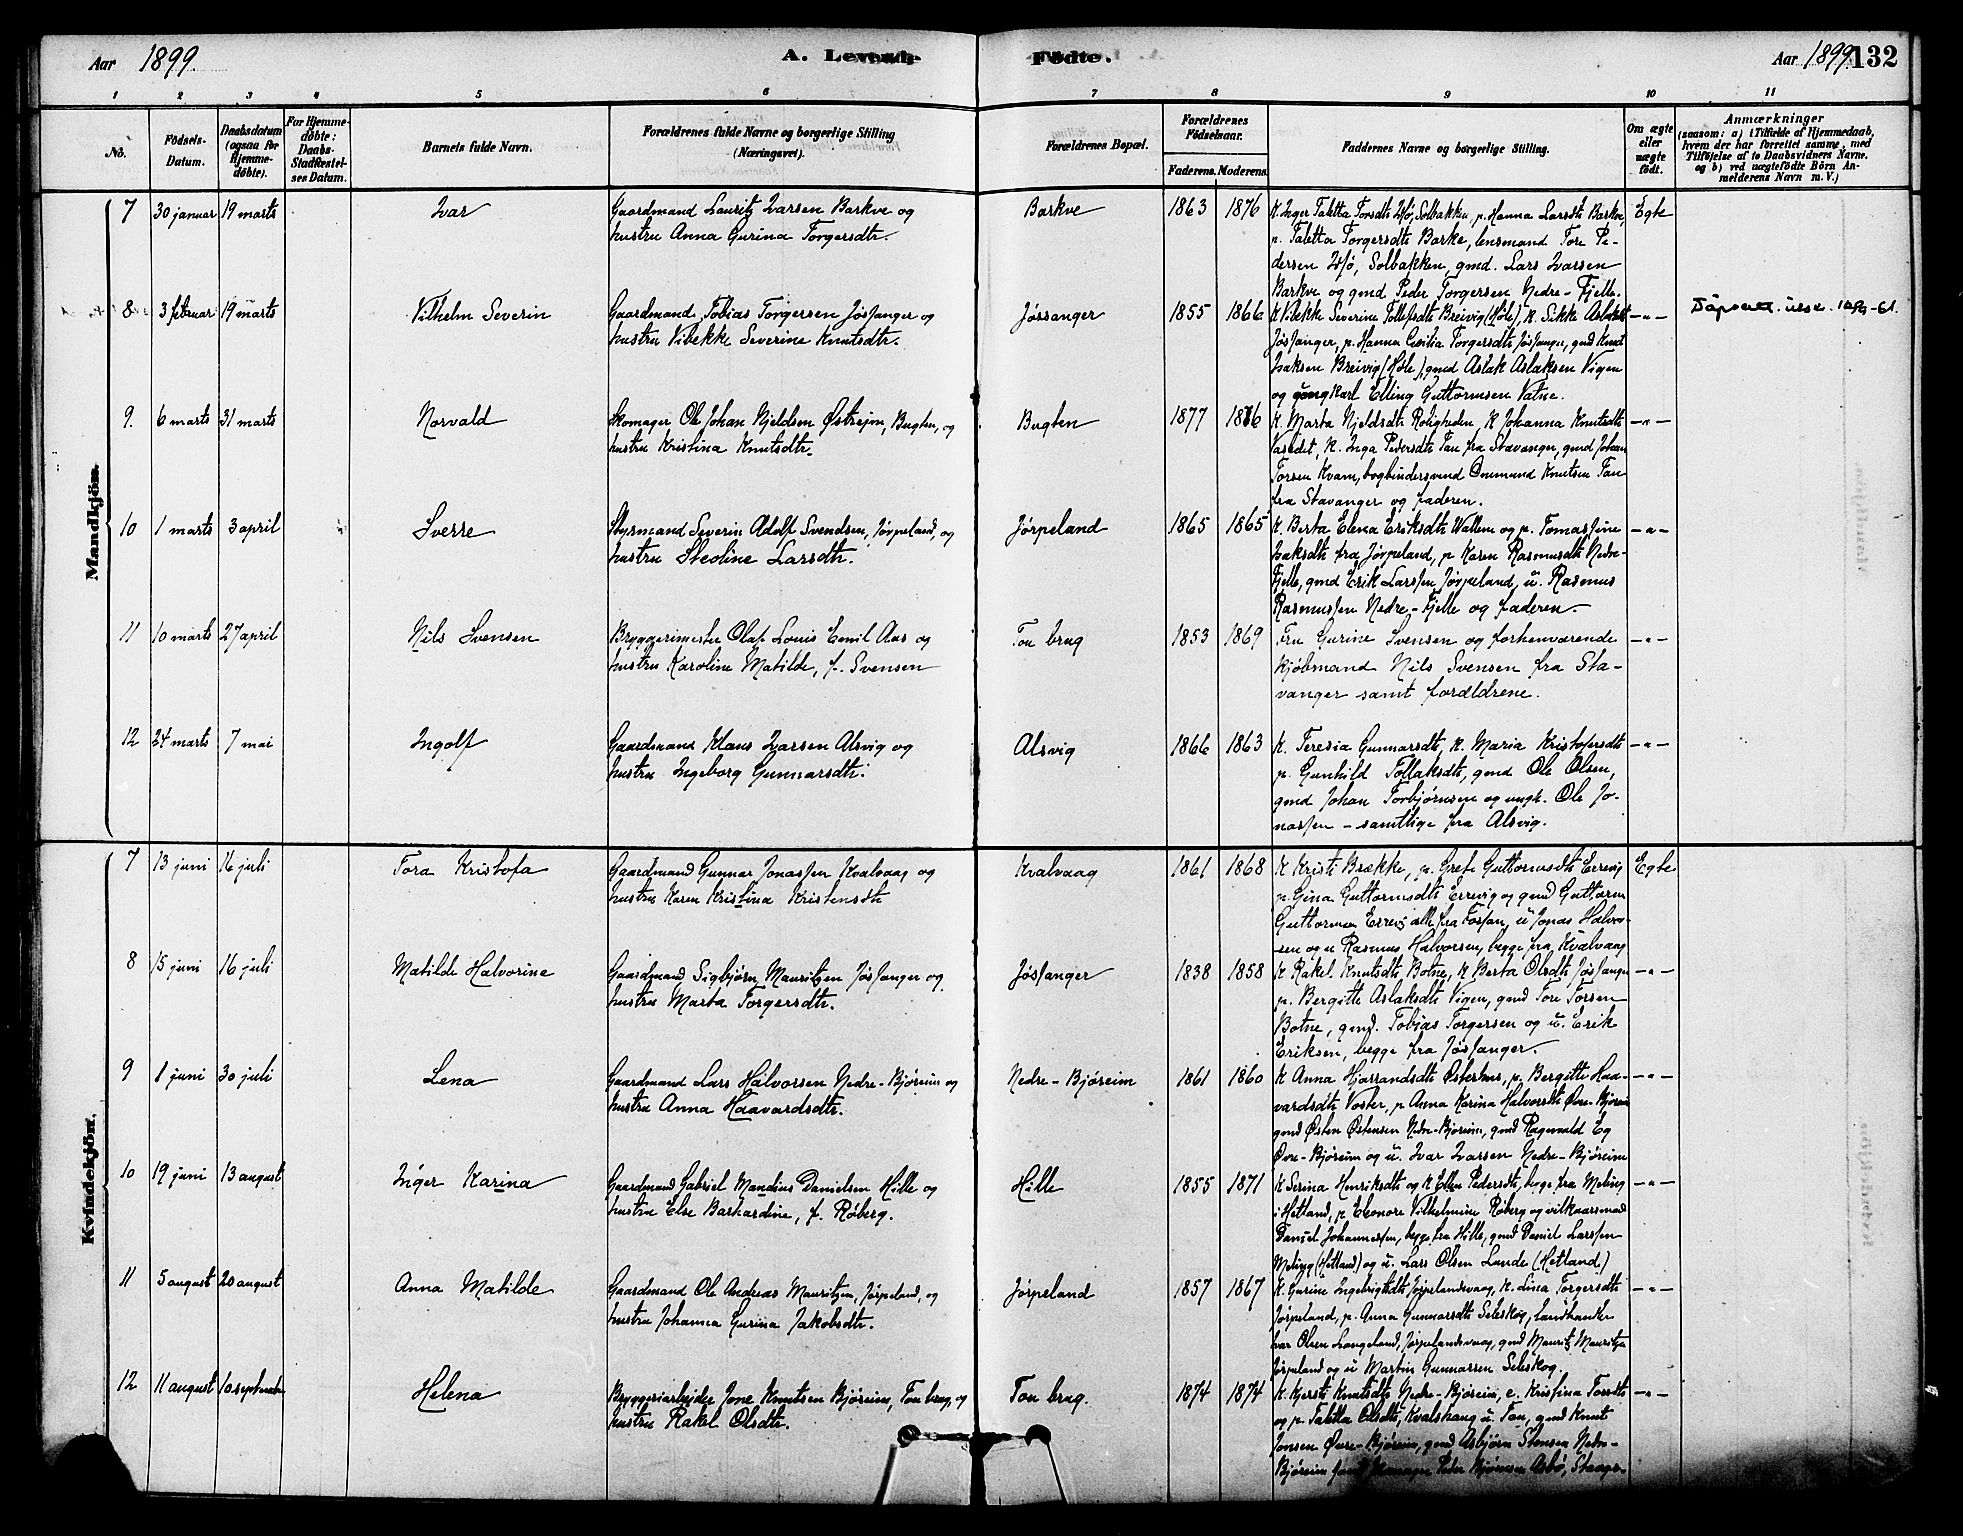 Aar 1899. A. Levende Fødte. Aar 1899. 132
1 2 3 4 5 6 7 8 9 10 11
No.
Fødsels-
Datum.
Daabsdatum
(ogsaa for
Hjemme-
døbte).
For Hjemme-
døbte:
Daabs-
Stadfæstel-
ses Datum.
Barnets fulde Navn.
Forældrenes fulde Navne og borgerlige Stilling
(Næringsvei).
Forældrenes Bopæl.
Forældrenes
Fødselsaar.
Faderens. Moderens.
Faddernes Navne og borgerlige Stilling.
Om ægte
eller
uægte
født.
Anmærkninger
(saasom: a) i Tilfælde af Hjemmedaab,
hvem der har forrettet samme, med
Tilføielse af to Daabsvidners Navne.
og b) ved uægtefødte Börn An-
melderens Navn m. V.)
Mandkjön.
7 30 januar 19 marts Ivar
Gaardmand Lauritz Ivarsen Barkve og
hustru Anna Gurina Torgersdtr.
Barkve 1863 1876
K. Inger Taletta Torsdtr Idsö, Solbakken, p. Hanna Larsdtr Barkve,
p. Taletta Torgersdtr Barke, lensmand Tore Pe-
dersen Idsö, Solbakken, gmd. Lars Ivarsen
Barkve og gmd Peder Torgersen Nedre-Fjelle.
Egte
8 3 februar 19 marts Vilhelm Severin
Gaardmand Tobias Torgersen Jössanger og
hustru Vibekke Severine Knutsdtr.
Jössanger 1855 1866
K Vibekke Severine Tollefsdtr Breivig (Höle), K. Sikke Aslaksdtr
Jössanger, p. Hanna Cecilia Torgersdtr Jössanger, gmd Knut
Isaksen Breivig (Höle), gmd Aslak Aslaksen Vigen
og ungkarl Elling Guttormsen Vatne.
—"—
9. 6 marts 31 marts Norvald
Skomager Ole Johan Njeldsen Østrejm, Bugten, og
hustru Kristina Knutsdtr.
Bugten 1877 1876
K. Marta Njeldsdtr Roligheden, K Johanna Knutsdtr
K. Inga Pedersdtr Tau fra Stavanger, gmd Johan
Torsen Kvam, bogbindersvend Omund Knutsen Tau
fra Stavanger og faderen.
—"—
10 1 marts 3 april Sverre
Styrmand Severin Adolf Svendsen, Jörpeland, og
hustru Steoline Larsdtr.
Jörpeland 1865 1865
K. Berta Elena Eriksdtr Wallem og p. Tomasjine
Isaksdtr fra Jörpeland, p Karen Rasmusdtr Nedre-
Fjelle, gmd Erik Larssen Jörpeland, u. Rasmus
Rasmussen Nedre-Fjelle og faderen.
—"—
11 10 marts 27 april Nils Svensen
Bryggerimester Olaf Louis Emil Aas og
hustru Karoline Matilde, f. Svensen
Tou brug 1853 1869
Fru Gurine Svensen og forhenværende
kjöbmand Nils Svensen fra Sta-
vanger samt forældrene.
—"—
12 24 marts 7 mai Ingolf
Gaardmand Klaus Ivarsen Alsvig og
hustru Ingeborg Gunnarsdtr.
Alsvig 1866 1863
K. Teresia Gunnarsdtr, K. Maria Kristofersdtr
p. Gunhild Tollaksdtr, gmd Ole Olsen,
gmd Johan Torbjörnsen og ungk. Ole Jo-
nassen - samtlige fra Alsvig.
—"—
Kvindekjön.
7 13 juni 16 juli Tora Kristofa
Gaardmand Gunnar Jonassen Kvalvaag og
hustru Karen Kristina Kristensdtr
Kvalvaag 1861 1868
K Kristi Brække, p. Grete Guttormsdtr Errevig
p. Gina Guttormsdtr Errevig og gmd Guttorm
Guttormsen Errevig alle fra Fossan, u Jonas Halvor-
sen og u Rasmus Halvorsen, begge fra Kvalvaag
Egte
8 15 juni 16 juli Matilde Halvorine
Gaardmand Sigbjörn Mauritzen Jössanger og
hustru Marta Torgersdtr.
Jössanger 1838 1858
K Rakel Knutsdtr Botne, K Berta Olsdtr Jössanger
p. Bergitte Aslaksdtr Vigen, gmd Tore Torsen
Botne, gmd. Tobias Torgersen og u. Erik
Eriksen, begge fra Jössanger.
—"—
9 1 juni 30 juli Lena
Gaardmand Lars Halvorsen Nedre-Björeim og
hustru Anna Haavardsdtr.
Nedre-Björeim 1861 1860
K Anna Hjarrandsdtr Østerhus, p. Bergitte Haa-
vardsdtr Voster, p Anna Karina Halvorsdtr Övre-Björeim
gmd Østen Østensen Nedre-Björeim, gmd Ragnvald Eg
Övre-Björeim og u. Ivar Ivarsen Nedre-Björeim
—"—
10 19 juni 13 august Inger Karina
Gaardmand Gabriel Mandius Danielsen Hille og
hustru Else Barkardine, f. Röberg.
Hille 1855 1871
K Serina Henriksdtr og K Ellen Pedersdtr, begge fra Meling
i Hetland, p Eleonore Vilhelmine Röberg og vilkaarsmand
Daniel Johannessen, begge fra Hille, gmd Daniel Larssen
Meling (Hetland) og u. Lars Olsen Lunde (Hetland.)
—"—
11 5 august 20 august Anna Matilde
Gaardmand Ole Andreas Mauritzen, Jörpeland, og
hustru Johanna Gurina Jakobsdtr.
Jörpeland 1857 1867
K. Gurine Ingebrigtsdtr Jörpelandsvaag, K. Lina Torgersdtr
Jörpeland, p. Anna Gunnarsdtr Seleskog, landhandler
Ivar Olsen Langeland, Jörpelandsvaag, gmd Mauritz Mauritzen
Jörpeland og u Martin Gunnarsen Seleskog.
—"—
12 11 august 10 september Helena
Bryggeriarbejder Jone Knutsen Björeim, Tou brug, og
hustru Rakel Olsdtr.
Tou brug. 1874 1874
K. Kjersti Knutsdtr Nedre-Björeim, e. Kristina Torsdtr
og p. Taletta Olsdtr, Kvalshaug u. Tau, gmd Knut
Jonsen Övre-Björeim, gmd Asbjörn Stensen Nedre-
Björeim Peder
—"—